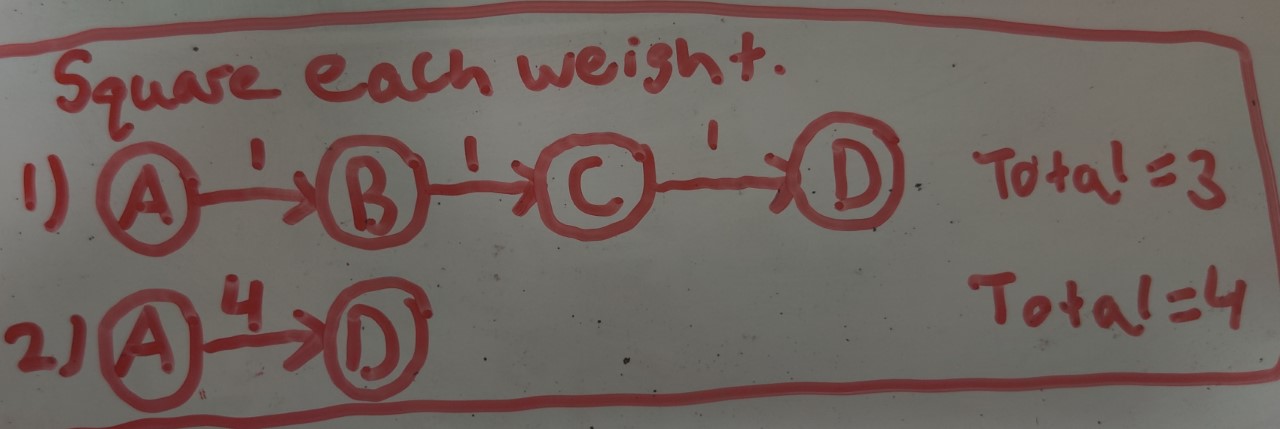 Square each weight.
1) A 1 B 1 C 1 D Total = 3
2) A 4 D Total = 4